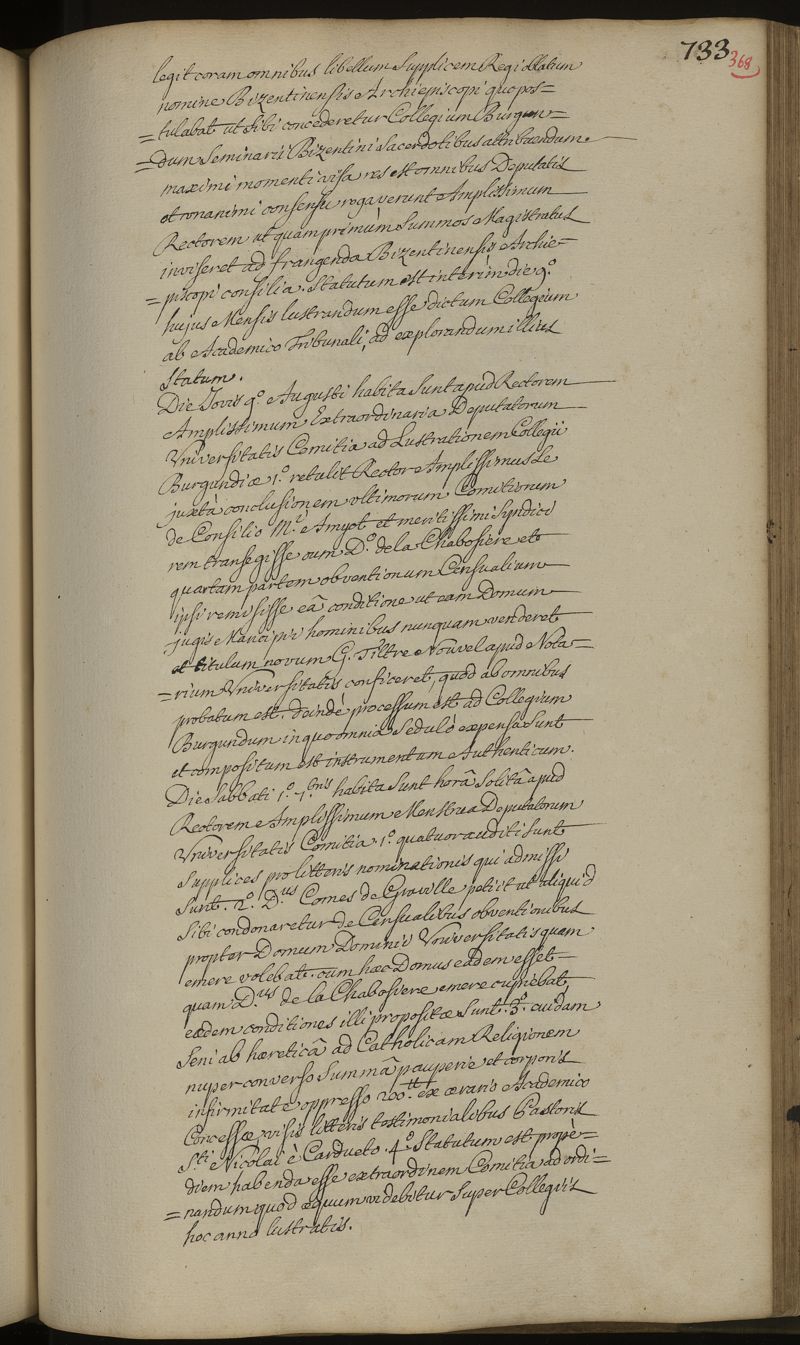 733
368
legit coram omnibus libellum Supplicem Regi oblatum
nomine Bizentinensis Archiepiscopi quo pos=
=tulabat ut sibi concederetur Collegium Burgun=
=dum Seminarii Bizentini Sacerdotibus attribuendum.
maximi momenti visa res est omnibus Deputatis
et unanimi consensu rogaverunt Amplissimum
Rectorem ut quamprimùm Summos Magistratus
inviseret ad frangenda Bizentinensis Archie=
=piscopi consilia. Statutum est interim die 9.º
hujus Mensis lustrandum esse dictum Collegium
ab Academico Tribunali, ad explorandum illius
Statum.
Die Jovis 9º. Augusti habita Sunt apud Rectorem
Amplissimum Extraordinaria Deputatorum
Universitatis Comitia ad Lustrationem Collegii
Burgundiæ 1.º retulit Rector Amplissimus Se
juxtà conclusionem ultimorum Comitiorum
de Consilio Mri Amyot et meritissimi Syndici
rem transegisse cum D.º de la Chabosiere et
quartam partem obventionum Censualium
ipsi remisisse eâ conditione ut eam Domum
jugis Mancipii hominibus nunquam venderet
et titulum novum G. Tiltre Nouvel apud Nota=
=rium Universitatis conficeret, quod ab omnibus
probatum est. deindè processum est ad Collegium
Burgundum in quo omnia Sedulò expensa Sunt
et compositum est instrumentum Authenticum.
Die Sabbati 1.º 7.bris habita Sunt horâ Solitâ apud
Rectorem Amplissimum Menstrua Deputatorum
Universitatis Comitia 1.º quatuor auditi Sunt
Supplices pro litteris nominationis qui admissi
Sunt. 2.º D.us Comes de Graville petiit ut aliquid
Sibi condonaretur de Censualibus obventionibus
propter Domum Dominii Universitatis quam
emere volebat. cum hæc Domus eadem esset
quam D.us de la Chabosiere emere cupiebat,
eædem conditiones illi propositæ Sunt. 3.º cuidam
Seni ab hæreticâ ad Catholicam Religionem
nuper converso Summâ pauperie et corporis
infirmitate oppresso 200.tt ex ærario Academico
Concessæ, visis litteris testimonialibus Pastoris
S.ti Nicolai è Cardueto. 4.º Statutum est propè=
diem habenda esse extraordinem Comitia ad ordi=
=nandum quod æquum videbitur Super Collegiis
hoc anno lustratis.